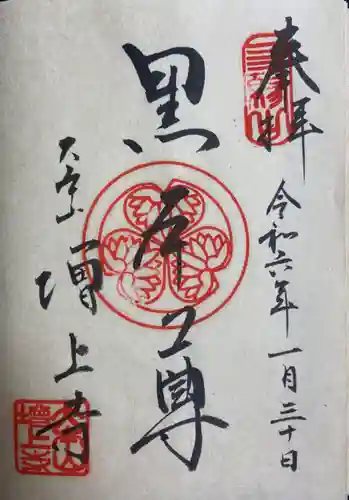 奉拝
令和六年一月三十日
黒本尊
大本山
増上寺